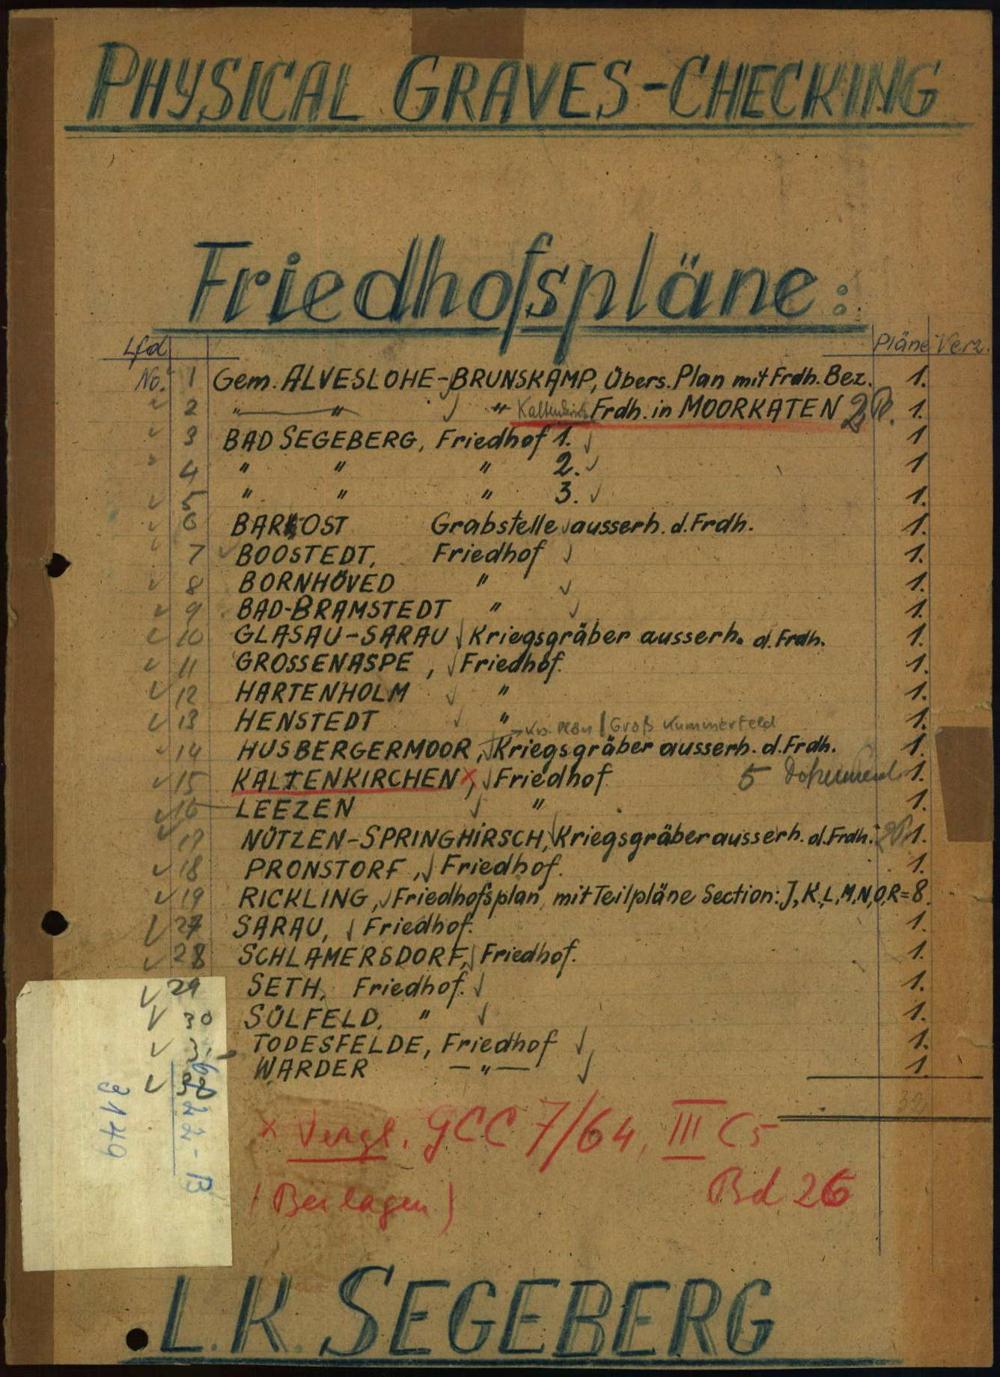 PHYSICAL GRAVES-CHECKING
Friedhofspläne:
Lfd No. Pläne Verz.
1 Gem. ALVESLOHE-BRUNSKAMP, Übers. Plan mit Frdh. Bez. 1.
2 " " " Frdh. in MOORKATEN 1.
3 BAD SEGEBERG, Friedhof 1. 1
4 " " " 2. 1
5 " " " 3. 1.
6 BARKOST Grabstelle ausserh. d. Frdh. 1.
7 BOOSTEDT, Friedhof 1.
8 BORNHÖVED " 1.
9 BAD-BRAMSTEDT " 1.
10 GLASAU-SARAU Kriegsgräber ausserh. d. Frdh. 1.
11 GROSSENASPE, Friedhof. 1.
12 HARTENHOLM " 1.
13 HENSTEDT " 1.
Groß Kummerfeld
14 HUSBERGERMOOR, Kriegsgräber ausserh. d. Frdh. 1.
15 KALTENKIRCHEN x, Friedhof 5 Dokumente 1.
16 LEEZEN " 1.
17 NÜTZEN-SPRINGHIRSCH, Kriegsgräber ausserh. d. Frdh. 1.
18 PRONSTORF, Friedhof. 1.
19 RICKLING, Friedhofsplan, mit Teilpläne Section: J, K, L, M, N, O, R = 8.
27 SARAU, Friedhof. 1.
28 SCHLAMERSDORF, Friedhof. 1.
29 SETH, Friedhof. 1.
30 SÜLFELD, " 1.
TODESFELDE, Friedhof 1.
WARDER " 1.
x Vergl. GCC 7/64, III C5
(Beilagen) Bd 26
3149
L.K. SEGEBERG